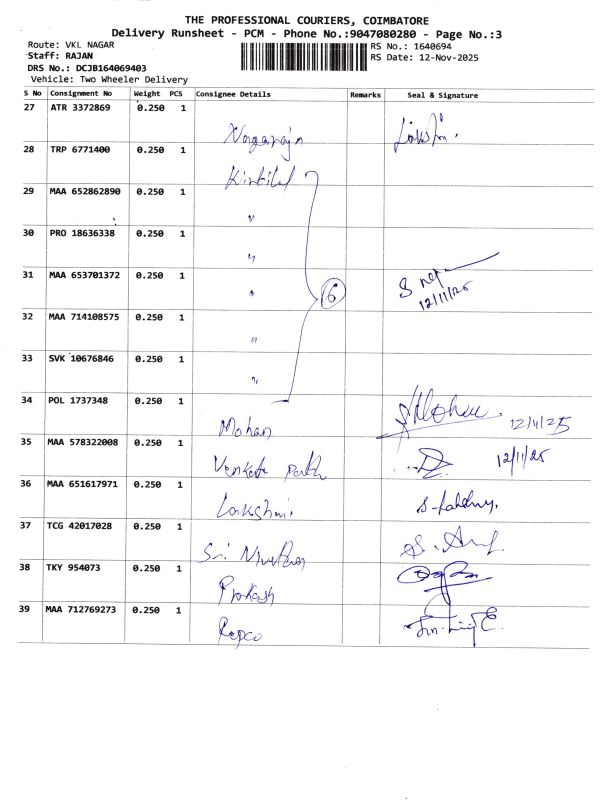 THE PROFESSIONAL COURIERS, COIMBATORE
Delivery Runsheet - PCM - Phone No.:9047080280 - Page No.:3
Route: VKL NAGAR
Staff: RAJAN
DRS No.: DCJB164069403
Vehicle: Two Wheeler Delivery
RS No.: 1640694
RS Date: 12-Nov-2025
S No Consignment No Weight PCS Consignee Details Remarks Seal & Signature
27 ATR 3372869 0.250 1
Nagaraj
28 TRP 6771400 0.250 1
29 MAA 652862890 0.250 1
"
30 PRO 18636338 0.250 1
"
31 MAA 653701372 0.250 1
" 6 12/11/25
32 MAA 714108575 0.250 1
"
33 SVK 10676846 0.250 1
"
34 POL 1737348 0.250 1
Mohan 12/11/25
35 MAA 578322008 0.250 1
12/11/25
36 MAA 651617971 0.250 1
Lakshmi.
37 TCG 42017028 0.250 1
Sri
38 TKY 954073 0.250 1
Prakash
39 MAA 712769273 0.250 1
Repco